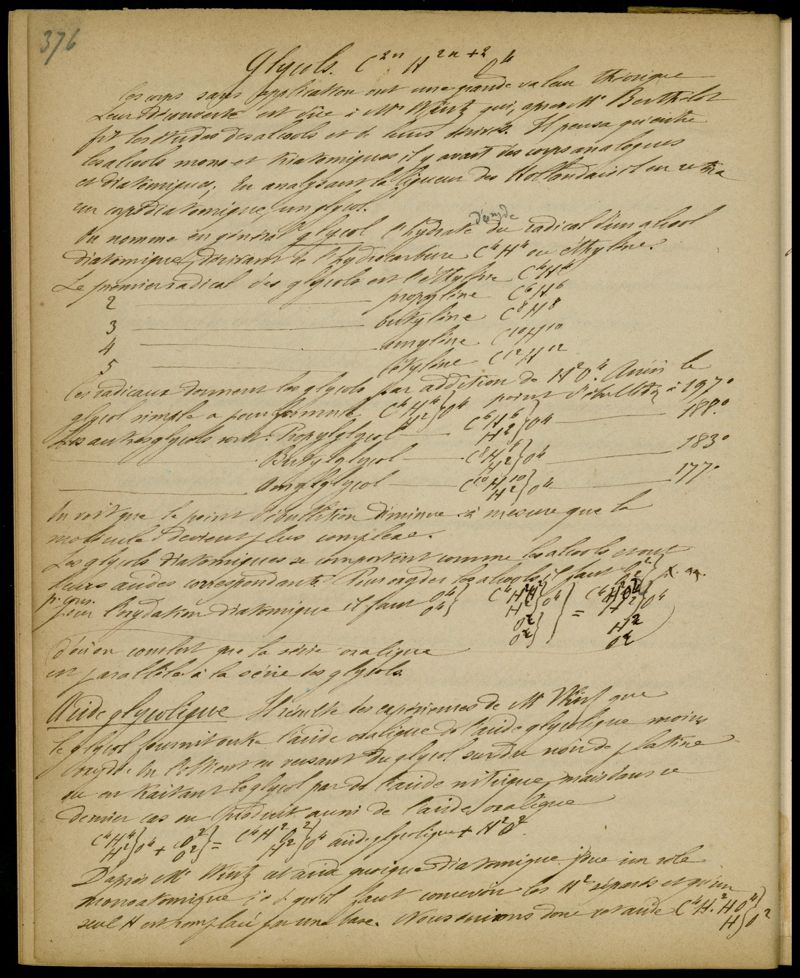 376
Glycols. C²ⁿ H²ⁿ⁺² O⁴
Ces corps sans application ont une grande valeur théorique
Leur découverte est dûe à Mr Würtz qui, après Mr Berthelot
fit les études des alcools et de leurs dérivés. Il pensa qu'entre
les alcools mono et triatomiques il y avait des corps analogues
et diatomiques; En analysant la liqueur des Hollandais il en retira
un corps diatomique, un glycol.
On nomme en général glycol l'hydrate du radical d'un alcool
d'oxyde
diatomique, dérivant de l'hydrocarbure C⁴H⁴ ou éthylène.
Le premier radical des glycols est l'éthylène C⁴H⁴
2 propylène C⁶H⁶
3 butylène C⁸H⁸
4 amylène C¹⁰H¹⁰
5 C¹²H¹²
Ces radicaux donnent les glycols par addition de H²O⁴. Ainsi le
glycol simple a pour formule C⁴H⁴ H² } O⁴ point d'ébullition à 197°
Les autres glycols sont: Propylglycol C⁶H⁶ H² } O⁴ 188°
Butylglycol C⁸H⁸ H² } O⁴ 183°
Amylglycol C¹⁰H¹⁰ H² } O⁴ 177°
On voit que le point d'ébullition diminue à mesure que la
molécule devient plus complexe.
Les glycols diatomiques se comportent comme les alcools et ont
leurs acides correspondants. Pour oxyder les alcools il faut O² O² }
pour l'oxydation diatomique il faut O⁴ O⁴ }
d'où on conclut que la série oxalique
est parallèle à la série des glycols.
Acide glycolique Il résulte des expériences de Mr Würtz que
le glycol fournit outre l'acide oxalique de l'acide glycolique moins
oxydé. On l'obtient en versant du glycol sur du noir de platine
ou en traitant le glycol par de l'acide nitrique, mais dans ce
dernier cas on produit aussi de l'acide oxalique
C⁴H⁴ H² } O⁴ + O² O² } = C⁴H²O² H² } O⁴ acide glycolique + H²O²
D'après Mr Würtz cet acide quoique diatomique joue un rôle
monoatomique c. à d. qu'il faut concevoir les H² séparés et qu'un
seul H est remplacé par une base. Nous écrirons donc cet acide C⁴H²HO⁴ H } O²